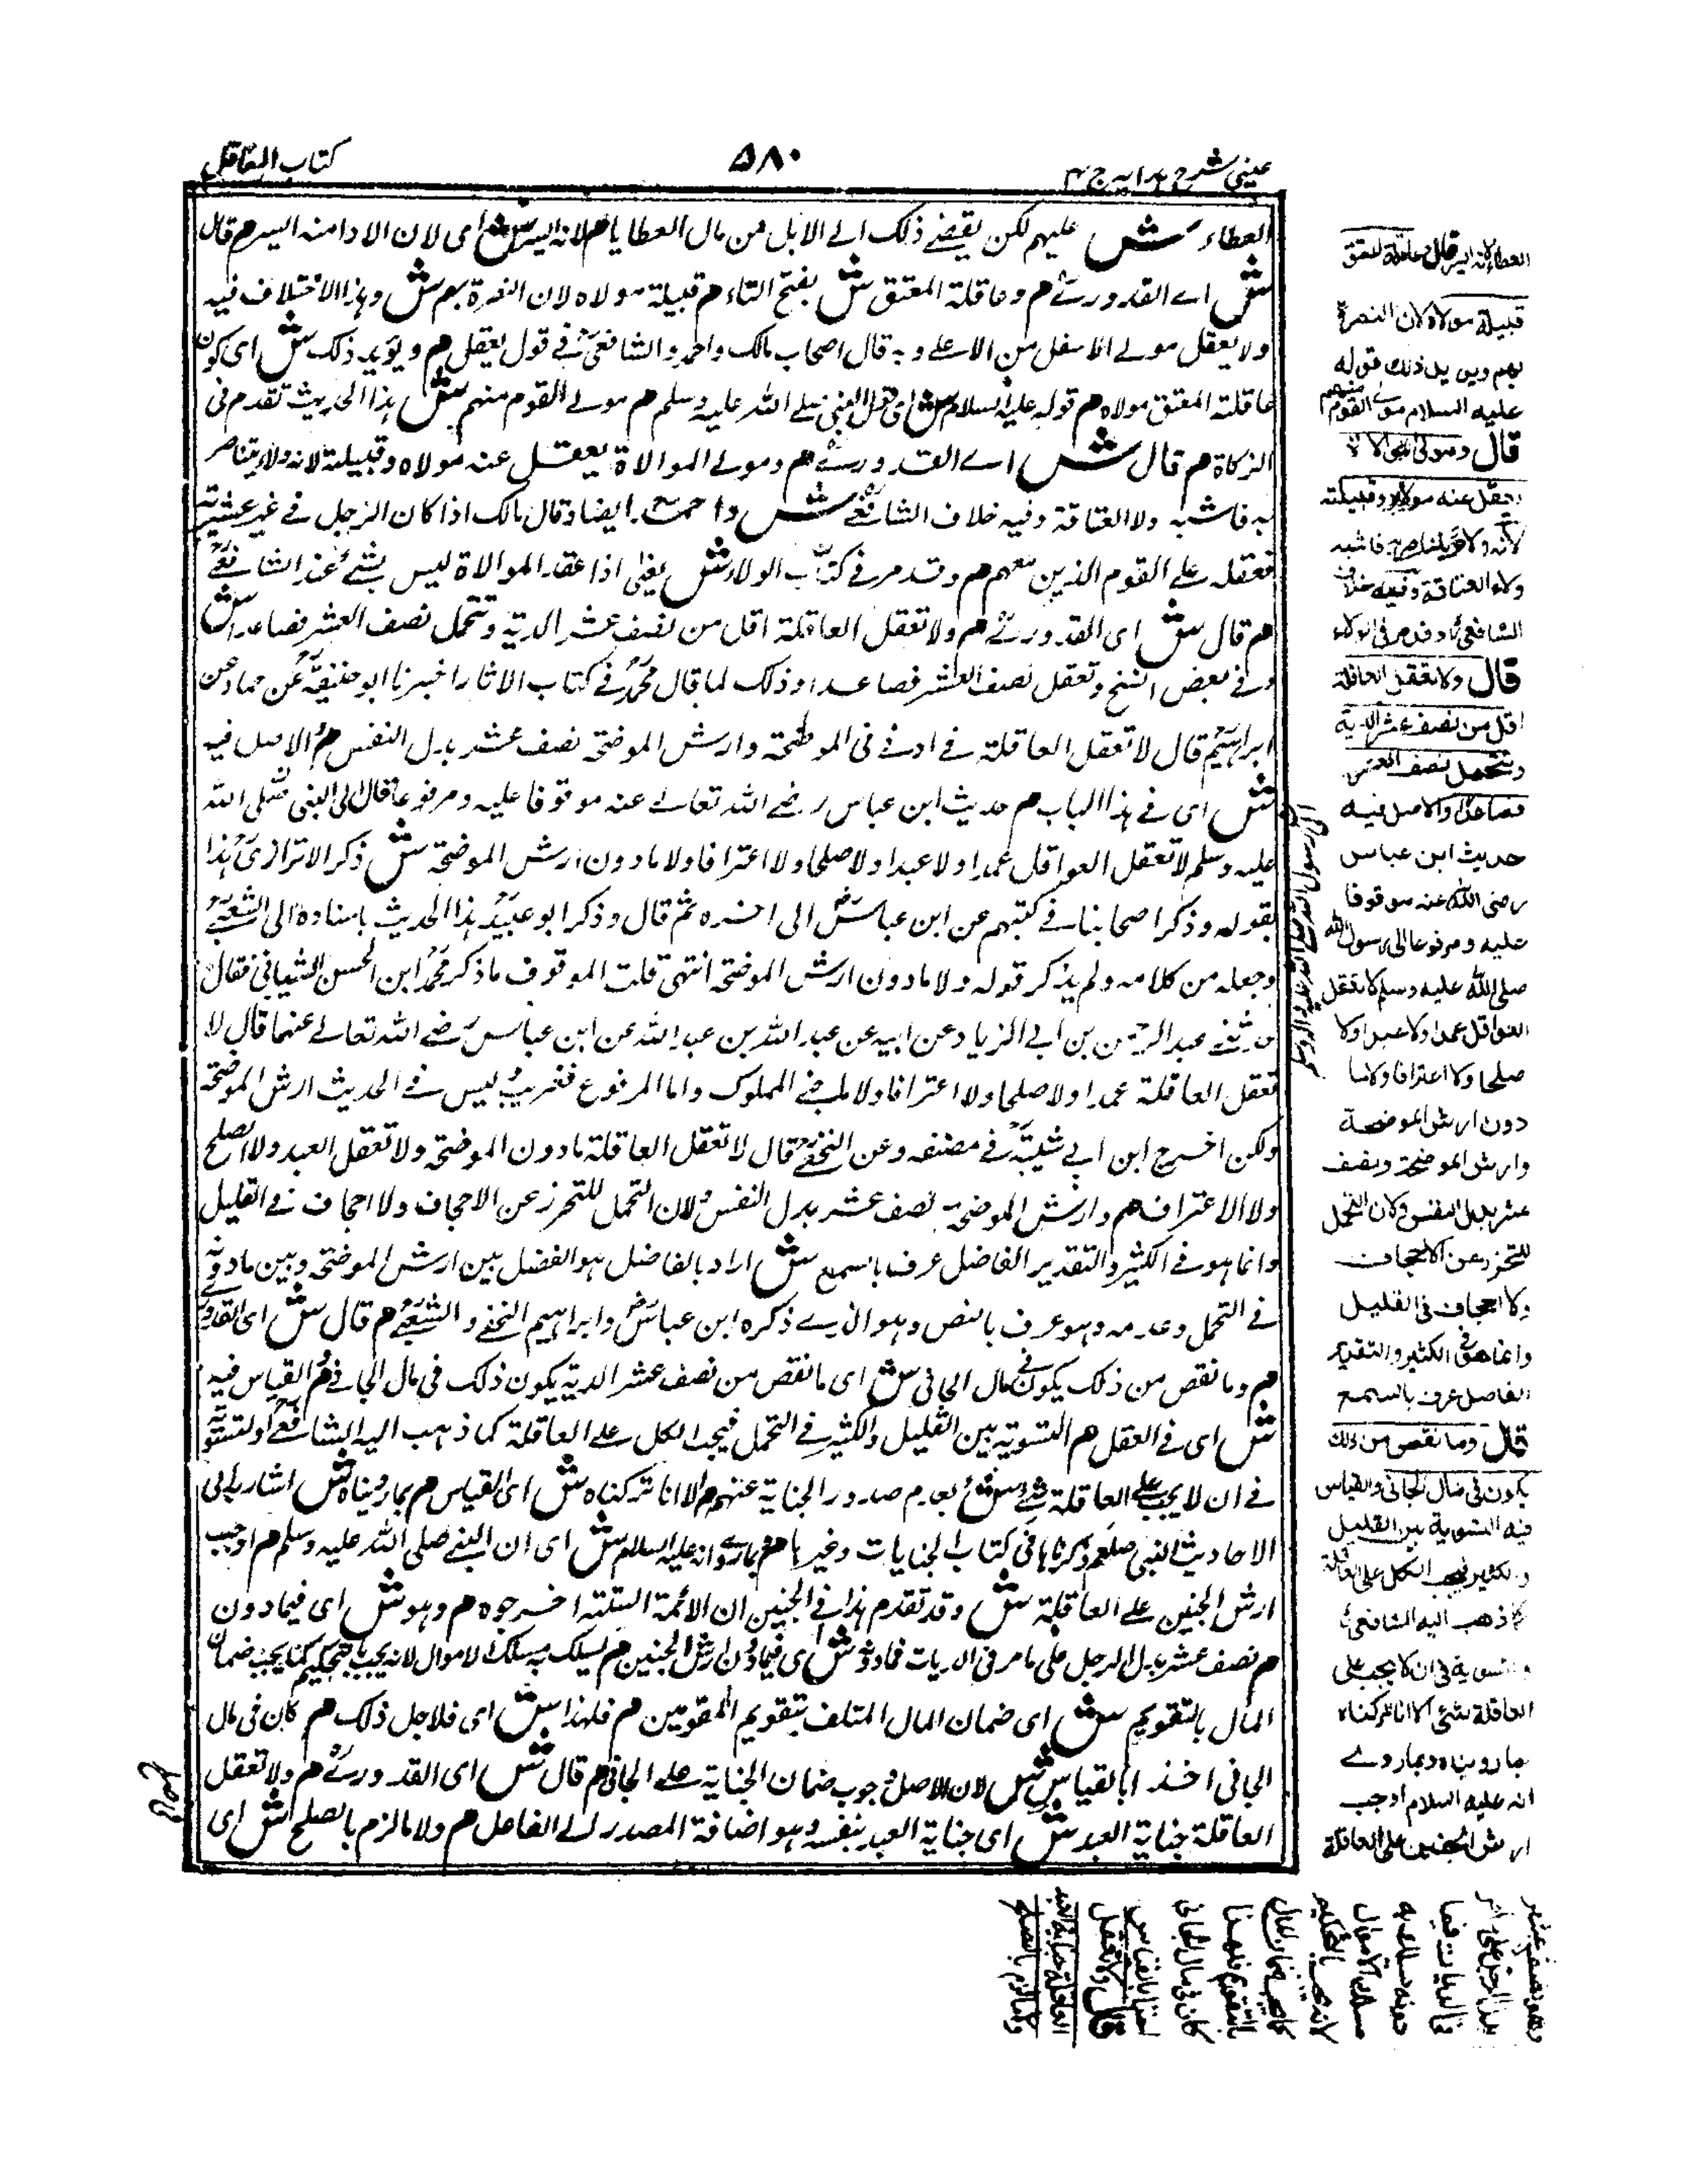 عينى شرح هدايه ج ۴
۵۸۰
كتاب المعاقل
العطاء ش عليهم لكن يقضى ذلك الى الابل من مال العطايا م لانه ايسر ش اى لان الادا منه ايسر م قال
ش اے القدورىؒ م وعاقلة المعتق ش بفتح التاء م قبيلة مولاه لان النصرة بهم ش وهذا لا اختلاف فيه
ولا يعقل مولے الاسفل من الاعلے وبه قال اصحاب مالك واحمد والشافعىؒ فے قول يعقل م ويؤيد ذلك ش اى كون
عاقلة المعتق مولاه م قوله عليه السلام ش اى قول النبى صلے الله عليه وسلم م مولے القوم منهم ش هذا الحديث تقدم فى
الزكاة م قال ش اے القدورىؒ م ومولے الموالاة يعقل عنه مولاه وقبيلته لانه ولاء يتناصر
به فاشبه ولاء العتاقة وفيه خلاف الشافعىؒ ش واحمدؒ ايضا وقال مالك اذا كان الرجل فے غير عشيرته
فعقله علے القوم الذين معهم م وقد مر فے كتاب الولاء ش يعنى اذا عقد الموالاة ليس بشئ عند الشافعىؒ
م قال ش اى القدورىؒ م ولا تعقل العاقلة اقل من نصف عشر الدية وتتحمل نصف العشر فصاعدا ش
وفے بعض النسخ وتعقل نصف العشر فصاعدا وذلك لما قال محمدؒ فے كتاب الاثار اخبرنا ابو حنيفةؒ عن حماد عن
ابراهيمؒ قال لا تعقل العاقلة فے ادنے فى الموضحة وارش الموضحة نصف عشر بدل النفس م والاصل فيه
ش اى فے هذا الباب م حديث ابن عباس رضے الله تعالے عنه موقوفا عليه ومرفوعا قال الى النبى صلى الله
عليه وسلم لا تعقل العواقل عمدا ولا عبدا ولا صلحا ولا اعترافا ولا ما دون ارش الموضحة ش ذكر الاترازىؒ هذا
بقوله وذكر اصحابنا فے كتبهم عن ابن عباسؓ الى اخره ثم قال وذكر ابو عبيدؒ هذا الحديث باسناده الى الشعبىؒ
وجعله من كلامه ولم يذكر قوله ولا ما دون ارش الموضحة انتهى قلت الموقوف ما ذكر محمد ابن الحسن الشيبانى فقال
حدثنے عبد الرحمن بن ابے الزياد عن ابيه عن عبد الله بن عبد الله عن ابن عباس رضے الله تعالے عنهما قال لا
تعقل العاقلة عمدا ولا صلحا ولا اعترافا ولا ما جنے المملوك واما المرفوع فغريب وليس فے الحديث ارش الموضحة
ولكن اخرج ابن ابے شيبةؒ فے مصنفه وعن النخعىؒ قال لا تعقل العاقلة ما دون الموضحة ولا تعقل العبد ولا الصلح
ولا الاعتراف م وارش الموضحة نصف عشر بدل النفس ولان التحمل للتحرز عن الاجحاف ولا اجحاف فے القليل
وانما هو فے الكثير والتقدير الفاضل عرف بالسمع ش اراد بالفاضل هو الفضل بين ارش الموضحة وبين ما دونه
فے التحمل وعدمه وهو عرف بالنص وهو الذے ذكره ابن عباسؓ وابراهيم النخعے والشعبىؒ م قال ش اى القدورىؒ
م وما نقص من ذلك يكون فے مال الجانى ش اى ما نقص من نصف عشر الدية يكون ذلك فى مال الجانے م والقياس فيه
ش اى فے العقل م التسوية بين القليل والكثير فے التحمل فيجب الكل علے العاقلة كما ذهب اليه الشافعىؒ او التسوية
فے ان لا يجب علے العاقلة شئ ش لعدم صدور الجناية عنهم م الا انا تركناه ش اى القياس م بما روينا ش اشار به الى
الاحاديث النبى صلعم ذكرناها فى كتاب الجنايات وغيرها م وبما روى انه عليه السلام ش اى ان النبے صلى الله عليه وسلم م اوجب
ارش الجنين علے العاقلة ش وقد تقدم هذا فے الجنين ان الائمة الستة اخرجوه م وهو ش اى فيما دون
م نصف عشر بدل الرجل على ما مر فى الديات فما دونه ش اى فيما دون ارش الجنين م يسلك به مسلك الاموال لانه يجب بالتحكيم كما يجب ضمان
المال بالتقويم ش اى ضمان المال المتلف بتقويم المقومين م فلهذا ش اى فلاجل ذلك م كان فى مال
الجانى اخذا بالقياس ش لان الاصل وجوب ضمان الجناية علے الجانى م قال ش اى القدورىؒ م ولا تعقل
العاقلة جناية العبد ش اى جناية العبد بنفسه وهو اضافة المصدر الے الفاعل م ولا ما لزم بالصلح ش اى
العطاء لانه ايسر قال وعاقلة المعتق
قبيلة مولاه لان النصرة
بهم ويؤيد ذلك قوله
عليه السلام مولى القوم منهم
قال ومولى الموالاة
يعقل عنه مولاه وقبيلته
لانه ولاء يتناصر به فاشبه
ولاء العتاقة وفيه خلاف
الشافعىؒ وقد مر فى الولاء
قال ولا تعقل العاقلة
اقل من نصف عشر الدية
وتتحمل نصف العشر
فصاعدا والاصل فيه
حديث ابن عباس
رضى الله عنه موقوفا
عليه ومرفوعا الى رسول الله
صلى الله عليه وسلم لا تعقل
العواقل عمدا ولا عبدا ولا
صلحا ولا اعترافا ولا ما
دون ارش الموضحة
وارش الموضحة نصف
عشر بدل النفس ولان التحمل
للتحرز عن الاجحاف
ولا اجحاف فى القليل
وانما هو فى الكثير والتقدير
الفاصل عرف بالسمع
قال وما نقص من ذلك
يكون فى مال الجانى والقياس
فيه التسوية بين القليل
والكثير فيجب الكل على العاقلة
كما ذهب اليه الشافعىؒ
والتسوية فى ان لا يجب على
العاقلة شئ الا انا تركناه
بما روينا وبما روے
انه عليه السلام اوجب
ارش الجنين على العاقلة
وهو نصف عشر
بدل الرجل على ما مر
فى الديات فما
دونه يسلك به
مسلك الاموال
لانه يجب بالتحكيم
كما يجب ضمان المال
بالتقويم فلهذا
كان فى مال الجانى
اخذا بالقياس
قال ولا تعقل
العاقلة جناية العبد
ولا ما لزم بالصلح